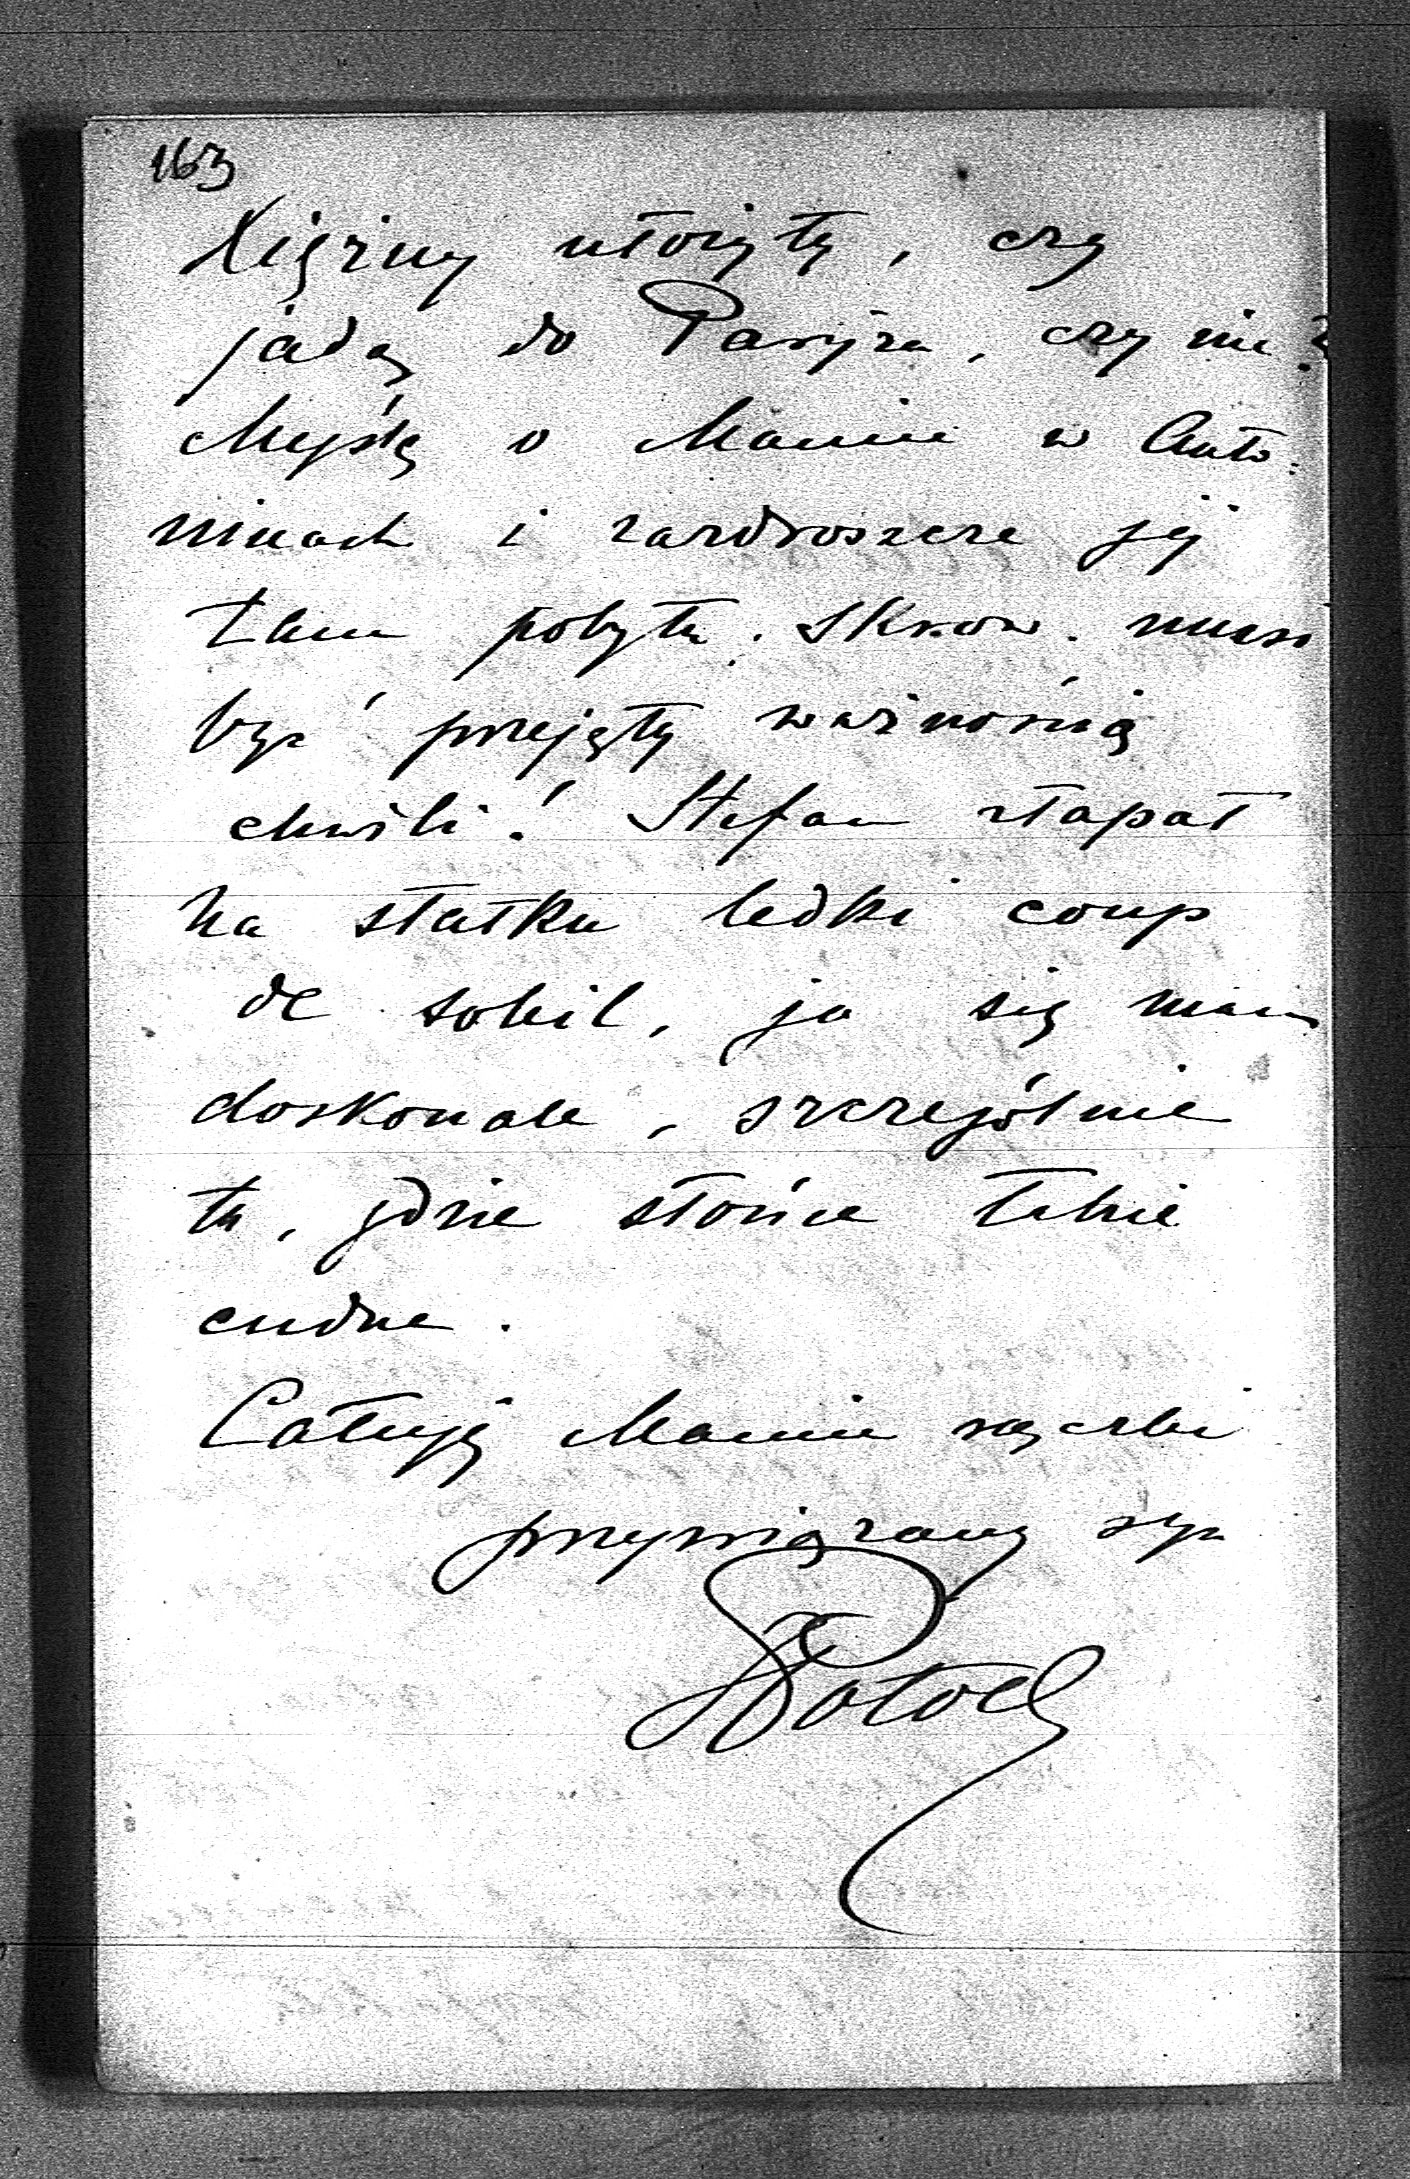 163
Xiężny ułożyły, czy
jadą do Paryża, czy nie?
Myślę o Mamie w Anto-
ninach i zazdroszczę jej
tam pobytu. Skrow. musi
być przejęty ważnością
chwili! Stefan złapał
na statku lekki coup
de soleil, ja się mam
doskonale, szczególnie
tu, gdzie słońce takie
cudne.
Całuję Mamie rączki
przywiązany syn
JPotocki